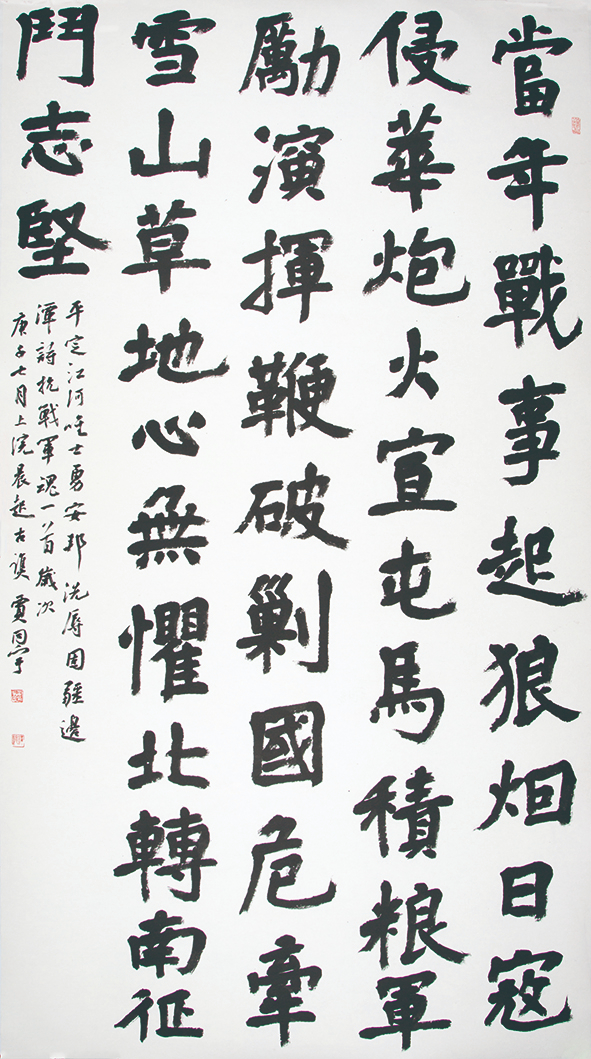 當年戰事起狼烟日寇
侵華炮火宣屯馬積粮軍
勵演揮鞭破剿國危牽
雪山草地心無懼北轉南征
鬥志堅
平定江河士勇安邦洗辱固疆邊
詩抗戰軍魂一首歲次
庚子七月上浣晨起古賈同